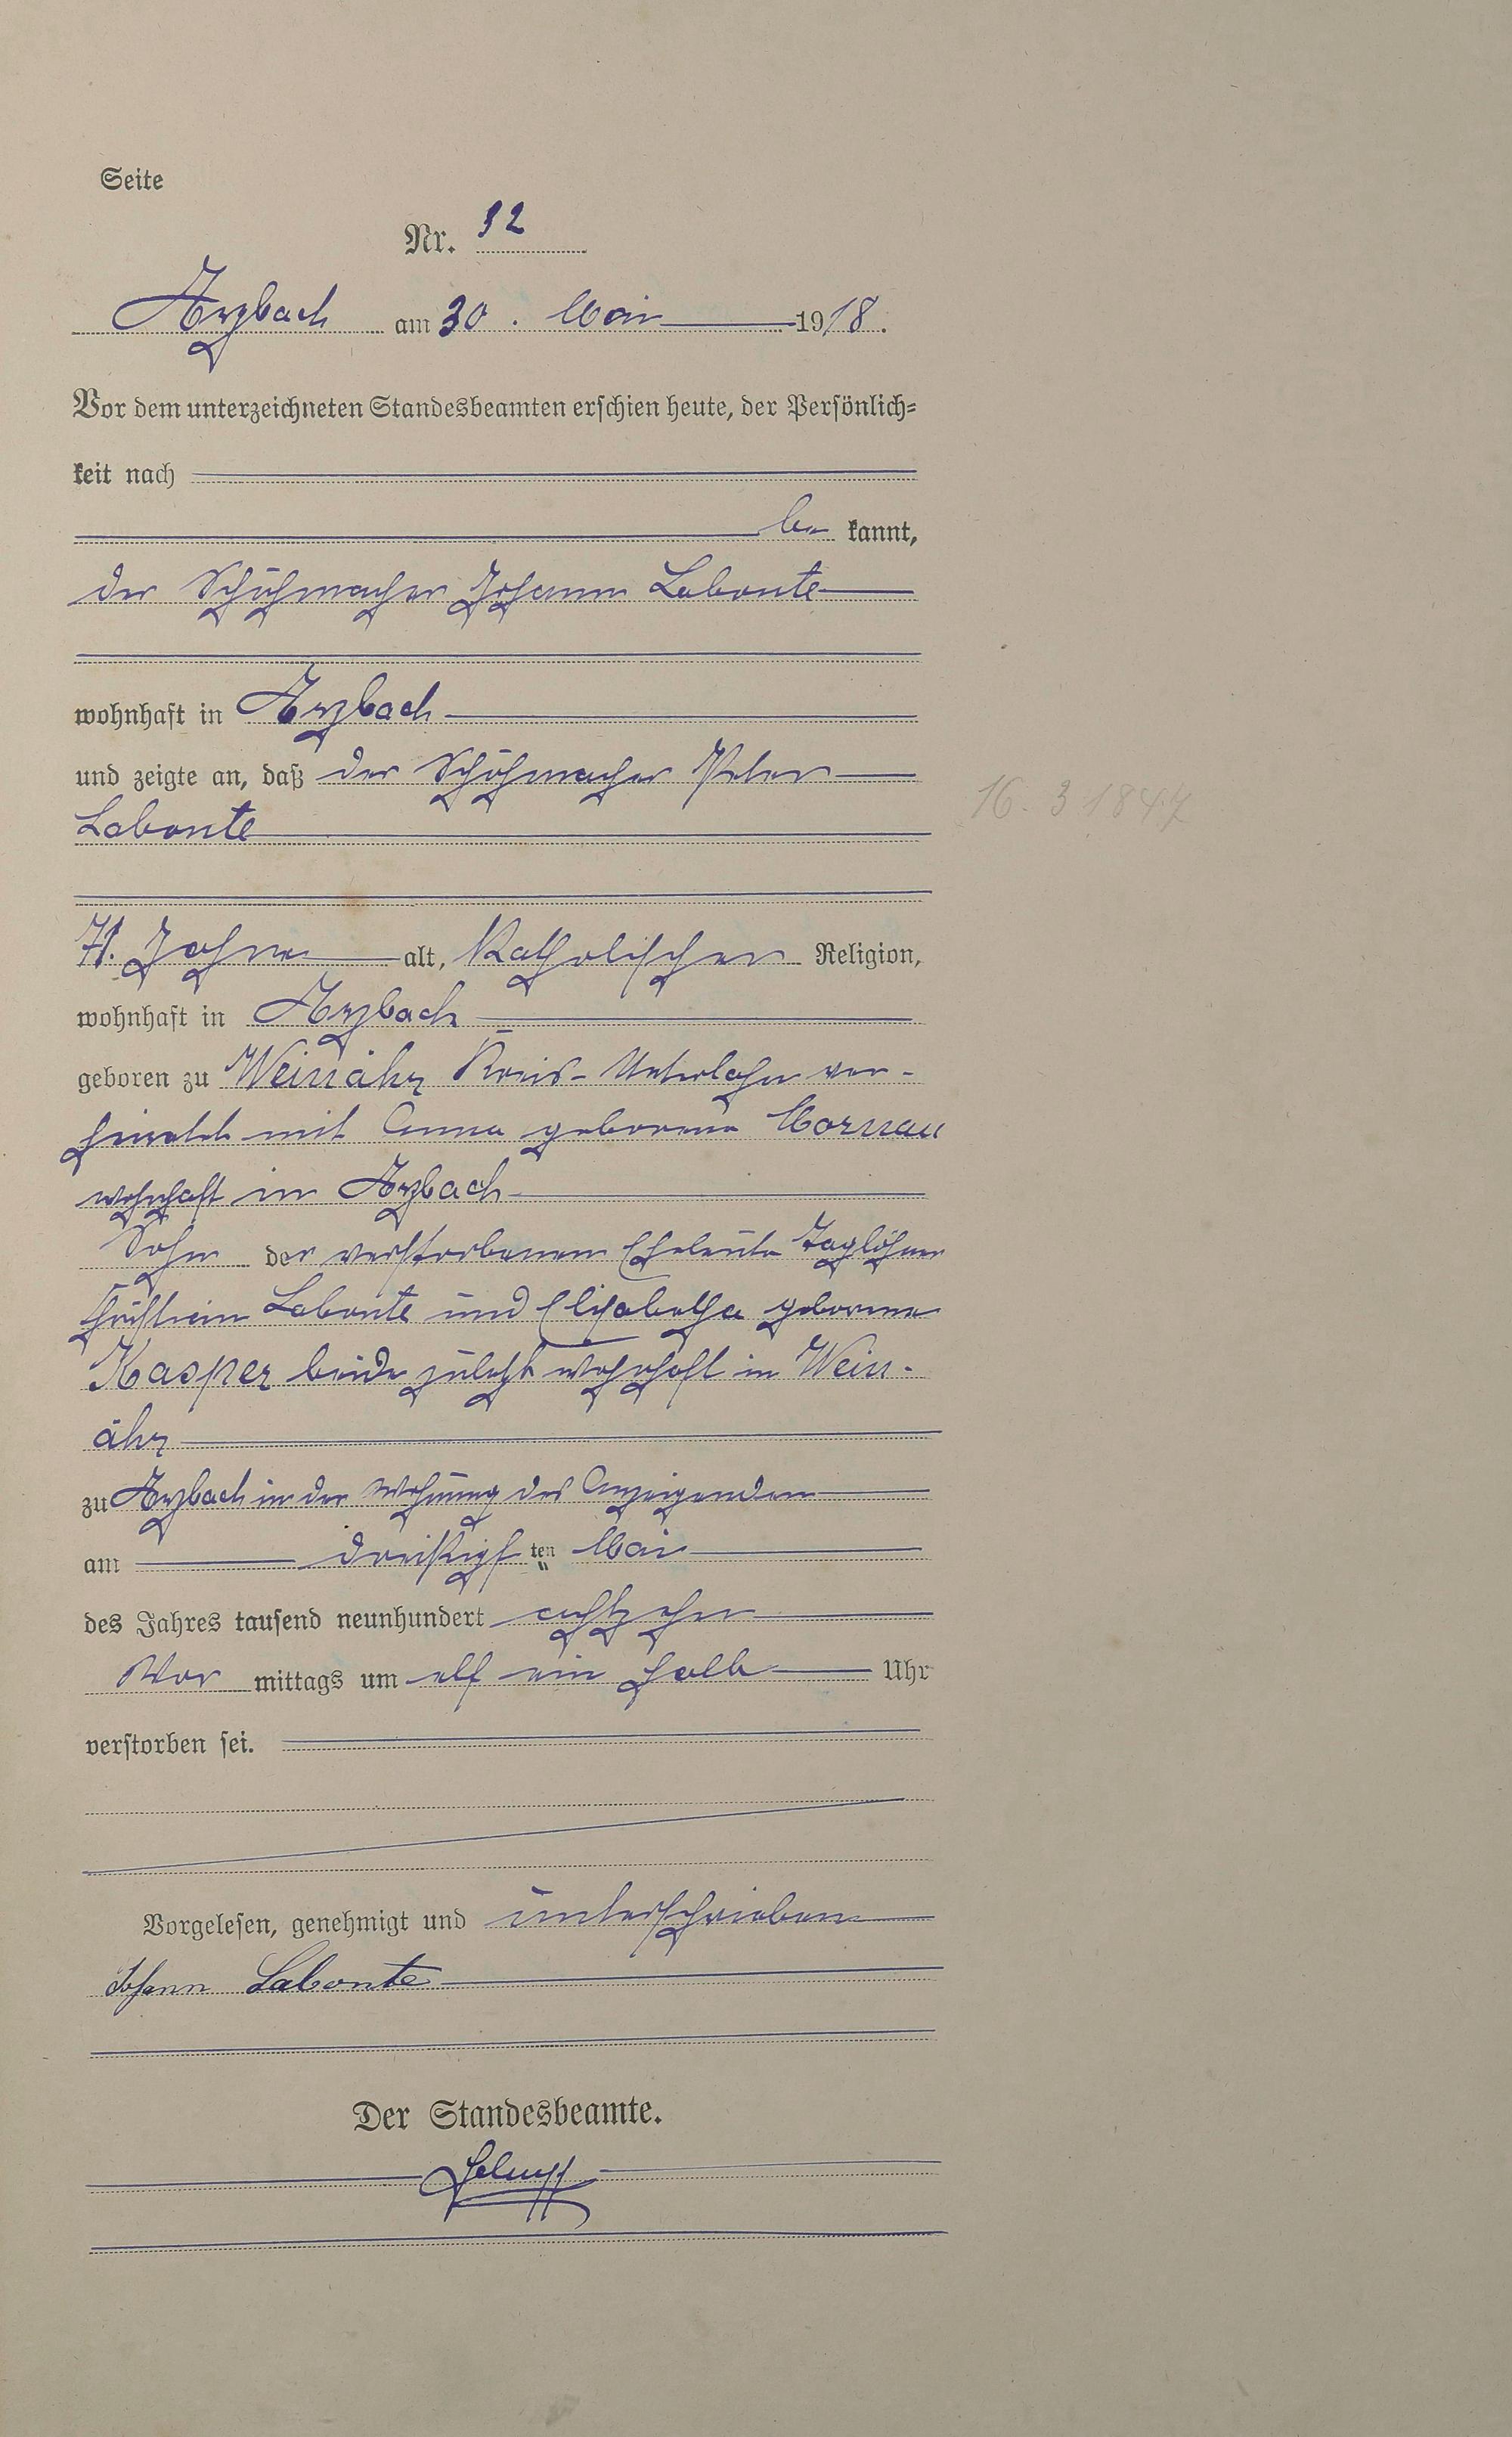 Seite
Nr. 32
Arzbach am 30. Mai 1918.
Vor dem unterzeichneten Standesbeamten erschien heute, der Persönlich=
keit nach
be kannt,
der Schuhmacher Johann Labonte
wohnhaft in Arzbach
und zeigte an, daß der Schuhmacher Peter
16. 3 1847
Labonte
71. Jahre alt, Katholischer Religion,
wohnhaft in Arzbach
geboren zu Weinähr Kreis-Unterlahn ver-
heiratet mit Anna geborene Mornau
wohnhaft in Arzbach
Sohn der verstorbenen Eheleute Taglöhner
Labonte und Elisabetha geborene
Kasper beide zuletzt wohnhaft in Wein-
ähr
zu Arzbach in der Wohnung des Anzeigenden
am dreißigsten Mai
des Jahres tausend neunhundert achtzehn
Vor mittags um elf ein halb Uhr
verstorben sei.
Vorgelesen, genehmigt und unterschrieben
Johann Labonte
Der Standesbeamte.